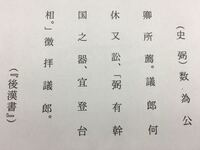 (史弼)数為公
卿所薦。議郎何
休又訟、「弼有幹
国之器、宜登台
相。」徴拝議郎。
(『後漢書』)